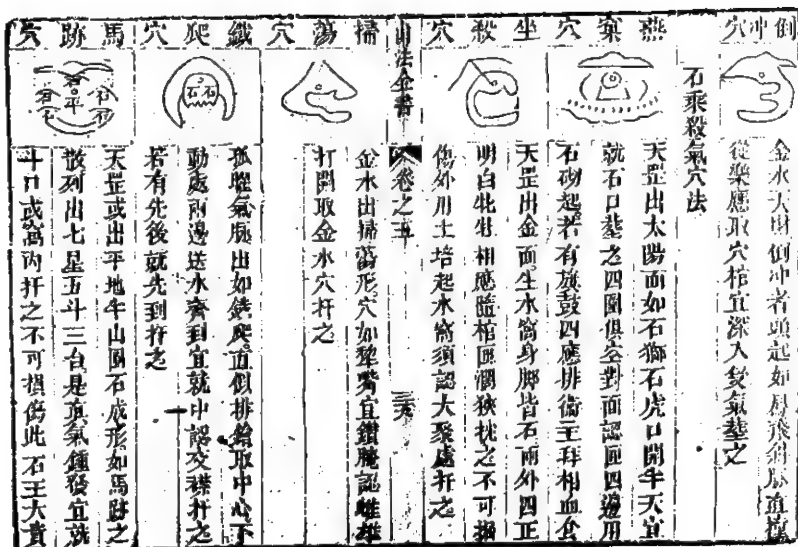 倒冲穴
金水大□倒冲者頭起如鳳飛斜脉直撞
從樂應取穴棺宜深入隻氣塟之
石乘殺氣穴法
燕窠穴
天罡出太陽面如石獅石虎口開半天宜
就石口塟之四圍俱全對面認匝四邊用
石砌起若有旗鼓四應排衙王拜相血食
坐殺穴
天罡出金面生水窩身脚皆石兩外四正
明白牝牡相應隨棺匝濶狹枕之不可損
傷外用土培起水窩須認大聚處扦之
山法全書
卷之五
掃蕩穴
金水出掃蕩形穴如犂嘴宜鑽腌認雌雄
打開取金水穴扦之
鐵爬穴
孤腥氣脉出如鉄爬直似排鎗取中心下
動處兩邊送水齊到宜就中認交襟扦之
若有先後就先到扦之
馬跡穴
天罡或出平地半山圓石成形如馬跡之
散列出七星五斗三台是旗氣鍾發宜就
斗口或窩內扦之不可損傷此石王大貴